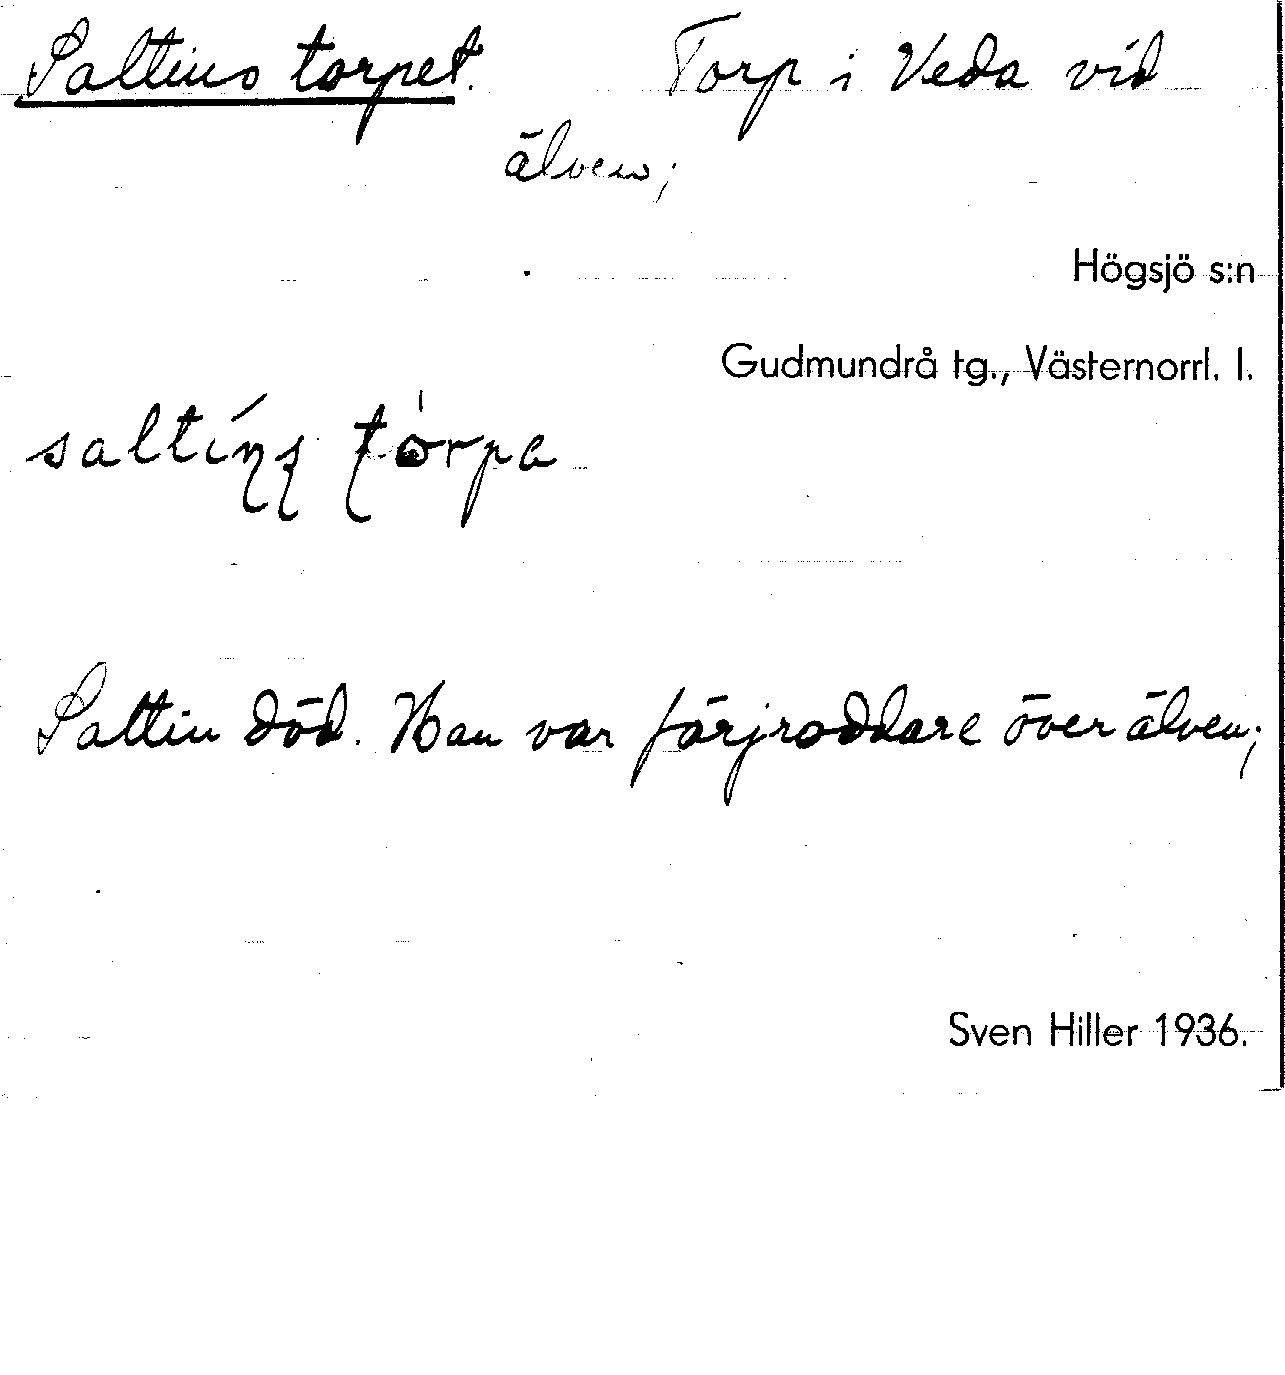 Saltins torpet. Torp i Veda vid
älven;
Högsjö s:n
Gudmundrå tg., Västernorrl. l.
saltíṇṣ ṭòrpa
Saltin död. Han var färjroddare över älven;
Sven Hiller 1936.